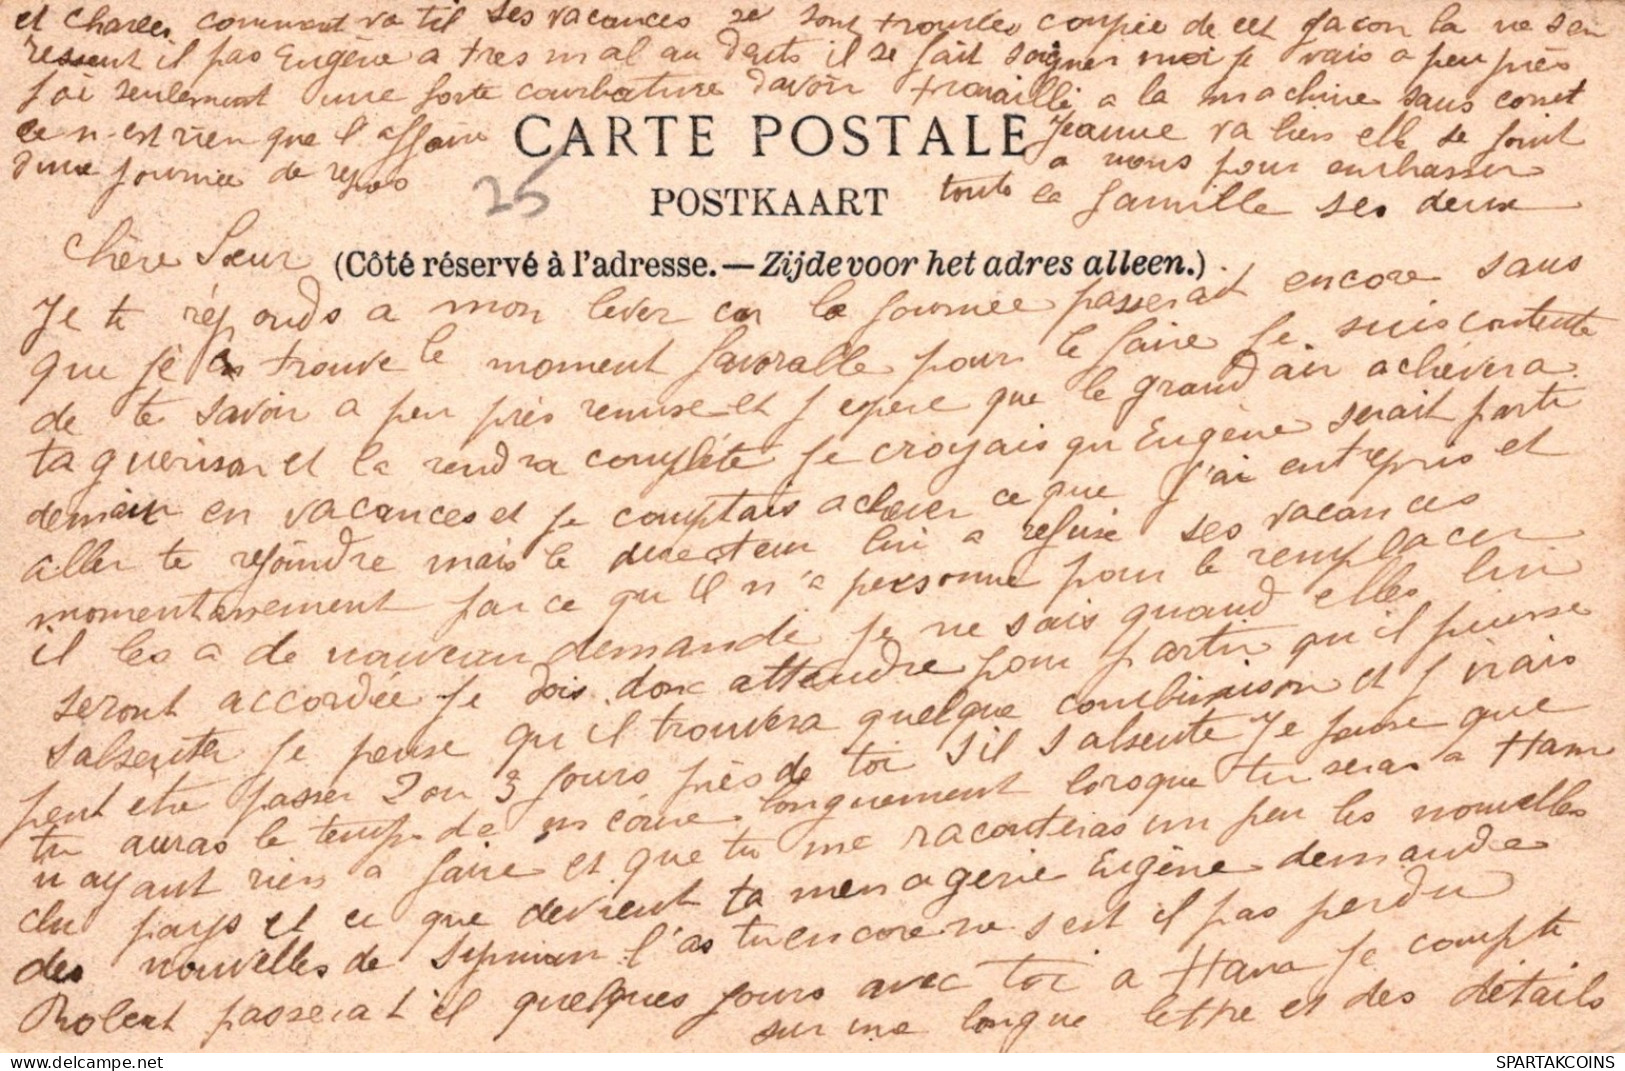 et Charles comment va til ses vacances se sont trouvées coupée de cet facon la ne sen
ressent il pas Eugène a tres mal au dents il se fait soigner moi je vais a peu près
j'ai seulement une forte courbature davoir travaillé a la machine sans
ce n'est rien que l'affaire
dune journée de repos
CARTE POSTALE
Jeanne va bien elle se joint
a nous pour embrasser
toute la famille ses deux
25
POSTKAART
Chère Sœur
(Côté réservé à l'adresse.—Zijde voor het adres alleen.)
Je te réponds a mon lever car la journée passerait encore sans
que je trouve le moment favorable pour le faire Je suis contente
de te savoir a peu près remise et j espere que le grand air achèvera
ta guérison et la rendra complète Je croyais qu Eugène serait parti
demain en vacances et je comptais achever ce que j'ai entrepris et
aller te rejoindre mais le directeur lui a refusé ses vacances
momentanement parce qu'il n'a personne pour le remplacer
il les a de nouveau demandé je ne sais quand elles lui
seront accordée je dois donc attendre pour partir qu il puisse
sabsenter je pense qu il trouvera quelque combinaison et j irais
peut etre passer 2 ou 3 jours près de toi s il s absente Je pense que
tu auras le temps de longuement lorsque tu seras a Ham
n ayant rien a faire et que tu me raconteras un peu les nouvelles
du pays et ce que devient ta menagerie Eugène demande
des nouvelles de l'as tu encore ne s est il pas perdu
Robert passerat il quelques jours avec toi a Ham Je compte
sur une longue lettre et des détails
SPARTAKCOINS